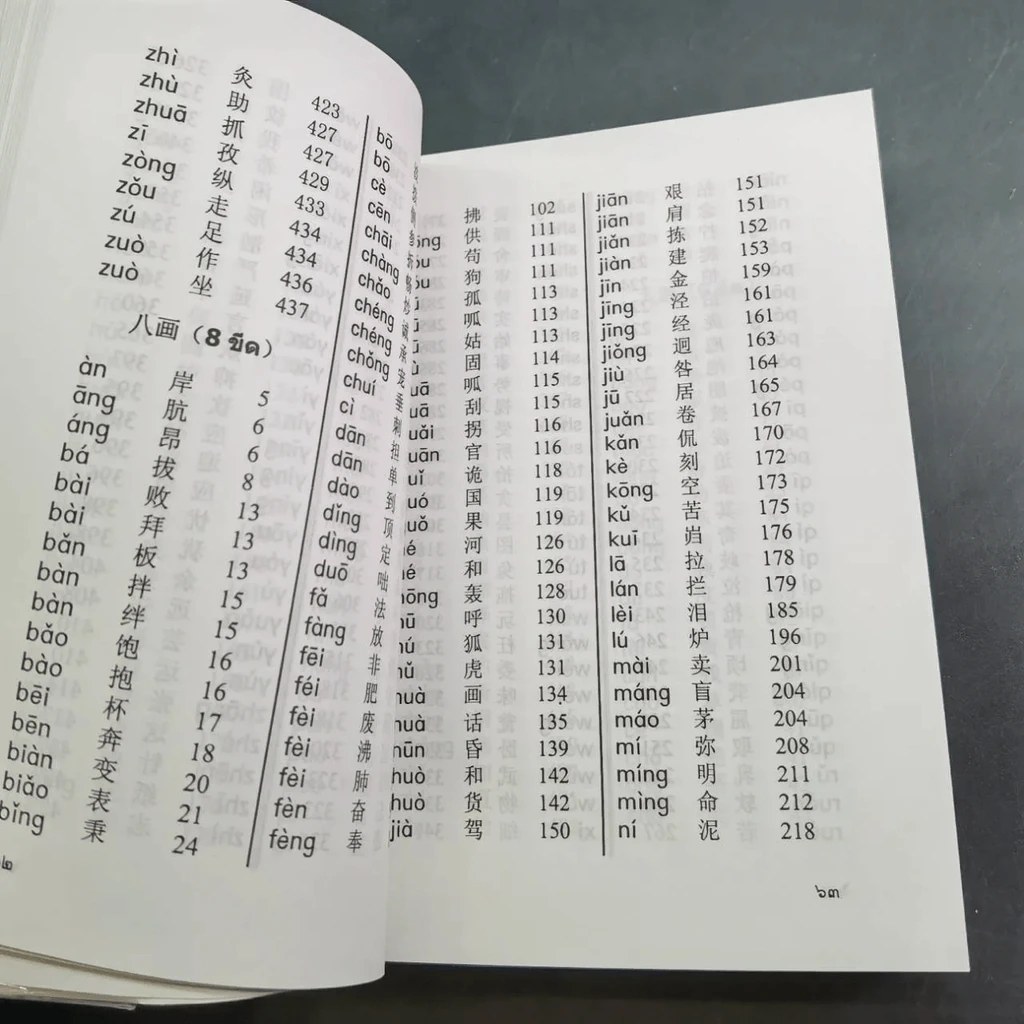 zhì 灸 423
zhù 助 427
zhuā 抓 427
zī 孜 429
zòng 纵 433
zǒu 走 434
zú 足 434
zuò 作 436
zuò 坐 437
八画 (8 ขีด)
àn 岸 5
āng 肮 6
áng 昂 6
bá 拔 8
bài 败 13
bài 拜 13
bǎn 板 13
bàn 拌 15
bàn 绊 15
bǎo 饱 16
bào 抱 16
bēi 杯 17
bēn 奔 18
biàn 变 20
biǎo 表 21
bǐng 秉 24
bō
bō
cè
cēn 参
chāi 拆
chàng 畅
chǎo 炒
chéng 诚
chéng 承
chǒng 宠
chuí 垂
cì 刺
dān 担
dān 单
dào 到
dǐng 顶
dìng 定
duō 咄
fǎ 法
fàng 放
fēi 非
féi 肥
fèi 废
fèi 沸
fèi 肺
fèn 奋
fèng 奉
拂 102
供 111
苟 111
狗 111
孤 113
呱 113
姑 113
固 114
呱 115
刮 115
拐 116
官 116
诡 118
国 119
果 119
河 126
和 126
轰 128
呼 130
狐 131
虎 131
huà 画 134
huà 话 135
hūn 昏 139
huò 和 142
huò 货 142
jià 驾 150
jiān 艰 151
jiān 肩 151
jiǎn 拣 152
jiàn 建 153
jīn 金 159
jīng 泾 161
jīng 经 161
jiǒng 迥 163
jiù 咎 164
jū 居 165
juǎn 卷 167
kǎn 侃 170
kè 刻 172
kōng 空 173
kǔ 苦 175
kuī 岿 176
lā 拉 178
lán 拦 179
lèi 泪 185
lú 炉 196
mài 卖 201
máng 盲 204
máo 茅 204
mí 弥 208
míng 明 211
mìng 命 212
ní 泥 218
๖๓